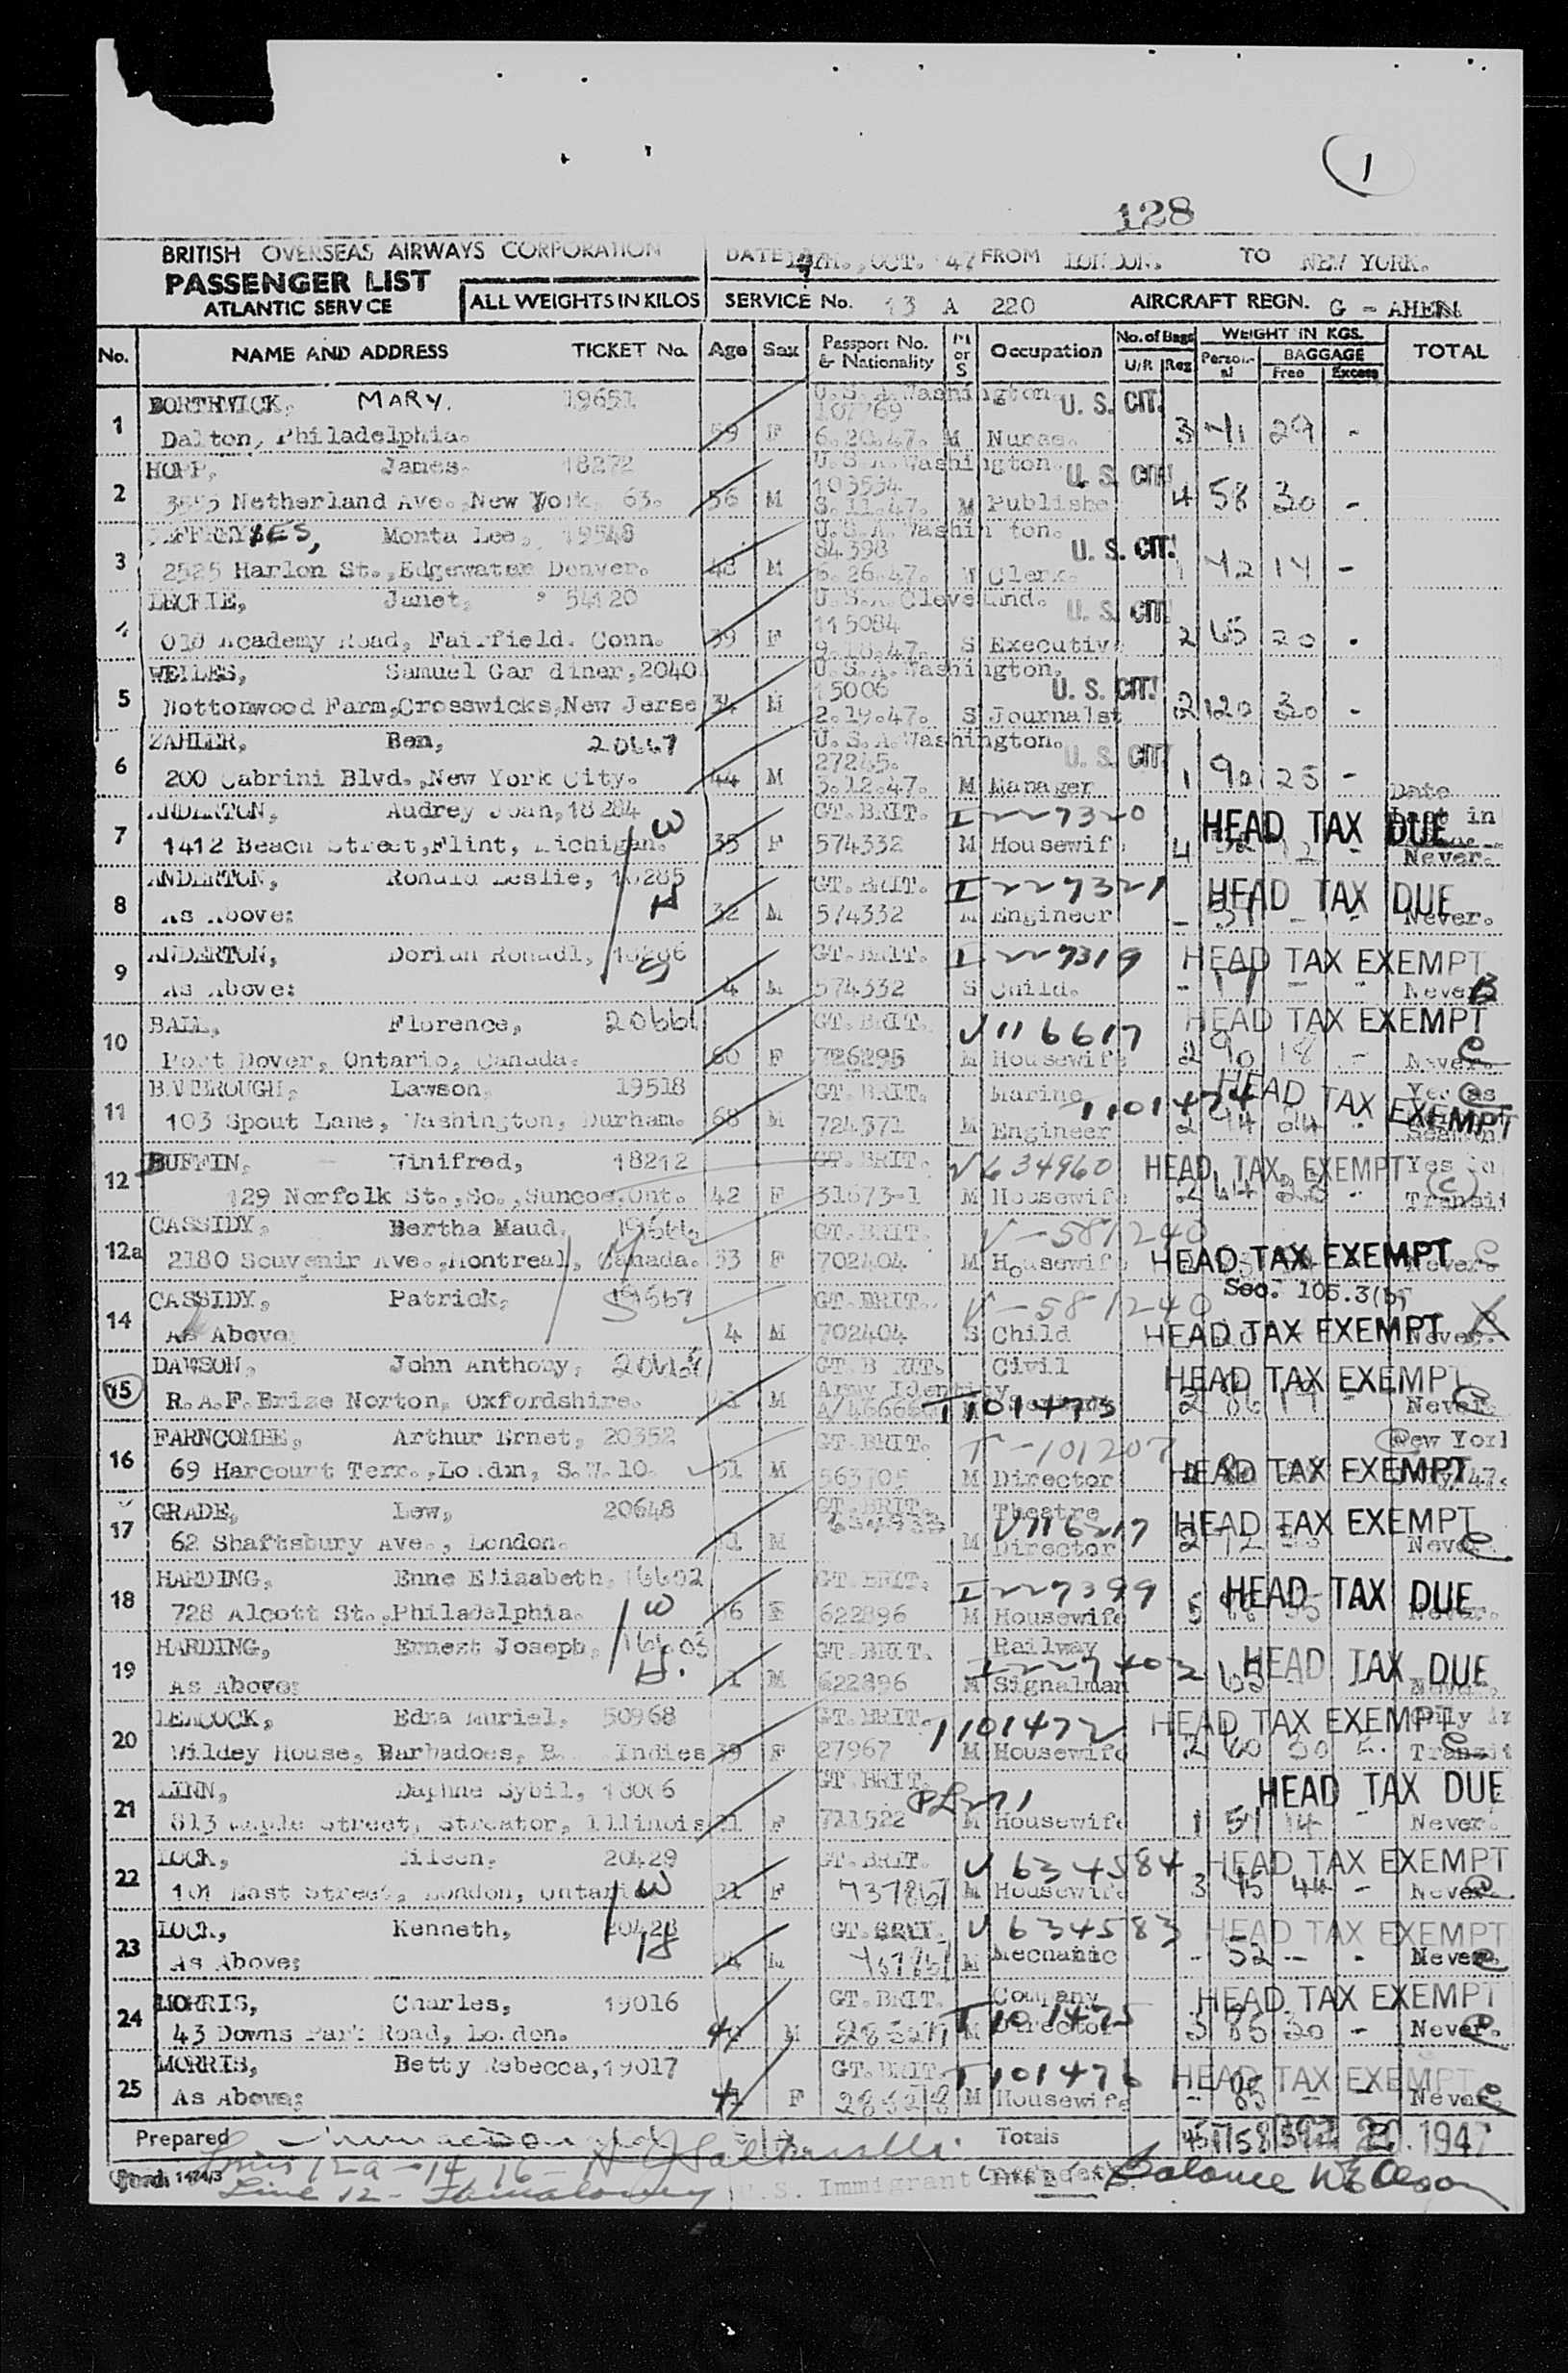 1
128
BRITISH OVERSEAS AIRWAYS CORPORATION
PASSENGER LIST
ATLANTIC SERVICE
ALL WEIGHTS IN KILOS
DATE OCT. 47 FROM LONDON. TO NEW YORK.
SERVICE No. 13 A 220 AIRCRAFT REGN. G -
No. NAME AND ADDRESS TICKET No. Age Sex Passport No. & Nationality M or S Occupation No. of Bags U/R Reg WEIGHT IN KGS. Person-al BAGGAGE Free Excess TOTAL
1 BORTHWICK, MARY. 19651 U.S.A. Washington. U. S. CIT.
107769
Dalton, Philadelphia. 59 F 6.20.47. M Nurse. 3 41 29 -
2 HOPP, James. 18272 U.S.A. Washington. U. S. CIT.
103534
Netherland Ave., New York, 63. 56 M 8.11.47. M Publishe 4 58 30 -
3 Monta Lee, 19548 U.S.A. Washin ton. U. S. CIT.
84398
2525 Harlon St., Edgewater Denver. 48 M 6.26.47. Clerk. 1 42 14 -
4 LECKIE, Janet, 54120 U.S.A. Cleveland. U. S. CIT
115084
Old Academy Road, Fairfield. Conn. 39 F 9.10.47. S Executive 2 65 20 -
5 WELLES, Samuel Gar diner, 2040 U.S.A. Washington. U. S. CIT.
15006
Bottonwood Farm, Crosswicks, New Jerse 34 M 2.19.47. S Journalst 2 120 30 -
6 ZAHLER, Ben, 20667 U.S.A. Washington. U. S. CIT
27245.
200 Cabrini Blvd., New York City. 44 M 3.12.47. M Manager 1 90 25 -
Date
7 ANDERTON, Audrey Joan, 18284 GT. BRIT. I 227320 HEAD TAX DUE
1412 Beach Street, Flint, Michigan. W 35 F 574332 M Housewif 4 12 - Never.
8 ANDERTON, Ronald Leslie, 18285 GT. BRIT. I 227321 HEAD TAX DUE
As Above: H 32 M 574332 M Engineer - - - Never.
9 ANDERTON, Dorian Ronadl, 18286 GT. BRIT. I 227319 HEAD TAX EXEMPT
As Above: S 4 M 574332 S Child. - 17 - - Never
10 BALL, Florence, 20661 GT. BRIT. V 116617 HEAD TAX EXEMPT
Port Dover, Ontario, Canada. 60 F 726295 M Housewife 2 90 18 - Never.
11 Lawson, 19518 GT. BRIT. Marine T 101474 HEAD TAX EXEMPT
103 Spout Lane, Washington, Durham. 68 M 724371 M Engineer 2
12 BUFFIN, Winifred, 18212 GT. BRIT. V 634960 HEAD TAX EXEMPT Yes In
129 Norfolk St., So., Ont. 42 F 31673-1 M Housewife 2 Transit
12a CASSIDY, Bertha Maud, 19666 GT. BRIT. V - 581240
2180 Souvenir Ave., Montreal, Canada. 33 F 702404 M Housewife HEAD TAX EXEMPT Never.
Sec. 105.3(b)
14 CASSIDY, Patrick, 19667 GT. BRIT. V - 581240
As Above: S 4 M 702404 S Child HEAD TAX EXEMPT Never.
15 DAWSON, John Anthony, GT. B RIT. Civil HEAD TAX EXEMPT
Army Identity
R.A.F. Brize Norton, Oxfordshire. M T 101473 2 86 19 - Never.
16 FARNCOMBE, Arthur Ernet, 20352 GT. BRIT. T - 101207 New York
69 Harcourt Terr., London, S.W. 10. 51 M 563705 M Director HEAD TAX EXEMPT
17 GRADE, Lew, 20648 GT. BRIT. Theatre V 116217 HEAD TAX EXEMPT
62 Shaftsbury Ave., London. M M Director 2 72 Never
18 HARDING, Enne Elizabeth, 16602 GT. BRIT. I 227399 HEAD TAX DUE
728 Alcott St., Philadelphia. W F 622896 M Housewife 5 Never.
19 HARDING, Ernest Joseph, 16603 GT. BRIT. Railway I 227402 HEAD TAX DUE
As Above: H. M 622896 M Signalman
20 LEACOCK, Edna Muriel, 50968 GT. BRIT. T 101472 HEAD TAX EXEMPT Only in
Wildey House, Barbadoes, B. Indies 39 F 27967 M Housewife 2 60 30 Transit
21 LINN, Daphne Sybil, GT. BRIT. HEAD TAX DUE
813 Maple Street, Streator, Illinois 21 F 711522 M Housewife 1 51 14 - Never.
22 LOCK, Eileen, 20429 GT. BRIT. V 634584 HEAD TAX EXEMPT
101 East Street, London, Ontario W 21 F 737867 M Housewife 3 45 44 - Never.
23 LOCK, Kenneth, 20428 GT. BRIT. V 634583 HEAD TAX EXEMPT
As Above: H 24 M M Mechanic - 52 - - Never.
24 MORRIS, Charles, 19016 GT. BRIT. Company T 101475 HEAD TAX EXEMPT
43 Downs Park Road, London. 40 M M Director 3 85 30 - Never.
25 MORRIS, Betty Rebecca, 19017 GT. BRIT. T 101476 HEAD TAX EXEMPT
As Above: F M Housewife - 85 - - Never.
Prepared Totals 1947
Lines 12a - 14 16 -
Line 12 - U.S. Immigrant Inspector Balance